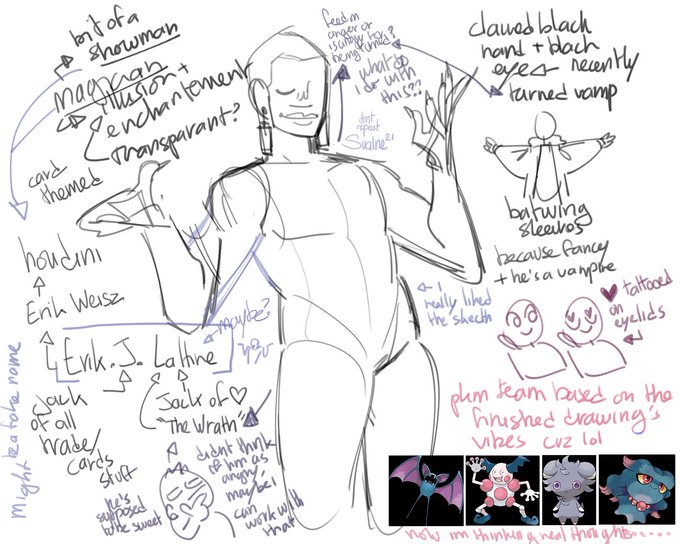 bit of a
showman
magician
illusion +
enchantement
transparant?
card
themed
houdini
Erik Weisz
Erik. J. Laffine
maybe?
Jack
of all
trade/
cards
stuff
Jack of ♡
"The Wrath"
didnt think
of him as
angry,
maybe I
can
work with
that
he's
supposed
to be sweet
might be a fake name
feed on
anger or
is angry for
being turned?
what do
I do with
this??
dont
repost
clawed black
hand + black
eye recently
turned vamp
batwing
sleeves
because fancy
+ he's a vampire
tattooed
on
eyelids
I
really liked
the sketch
pkm team based on the
finished drawing's
vibes cuz lol
now im thinking real thoughts......